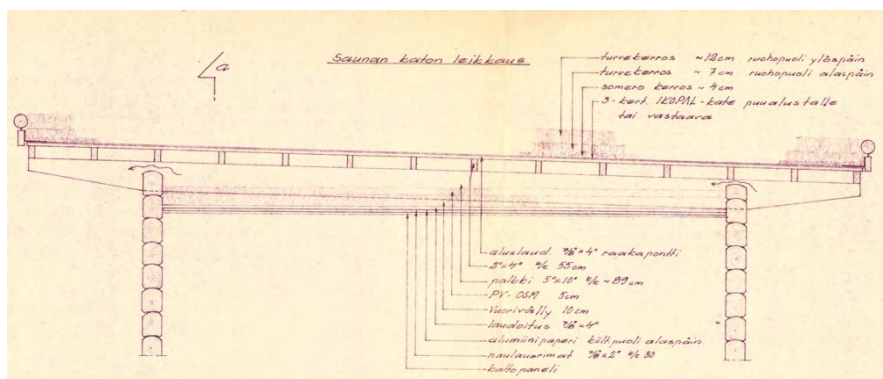 Saunan katon leikkaus
a
turvekerros ~12cm ruohopuoli ylöspäin
turvekerros ~7cm ruohopuoli alaspäin
somero kerros ~4cm
3-kert. IKOPAL-kate puualustalle
tai vastaava
aluslaud. 7/8"×4" raakapontti
2"×4" k/k 55cm
palkki 5"×10" k/k ~89cm
PV-OSM 5cm
Vuorivilly 10cm
laudoitus 7/8"×4"
alumiinipaperi kiiltpuoli alaspäin
naulausrimat 7/8"×2" k/k 30
kattopaneli